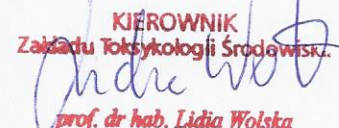 KIEROWNIK
Zakładu Toksykologii Środowisk.
prof. dr hab. Lidia Wolska